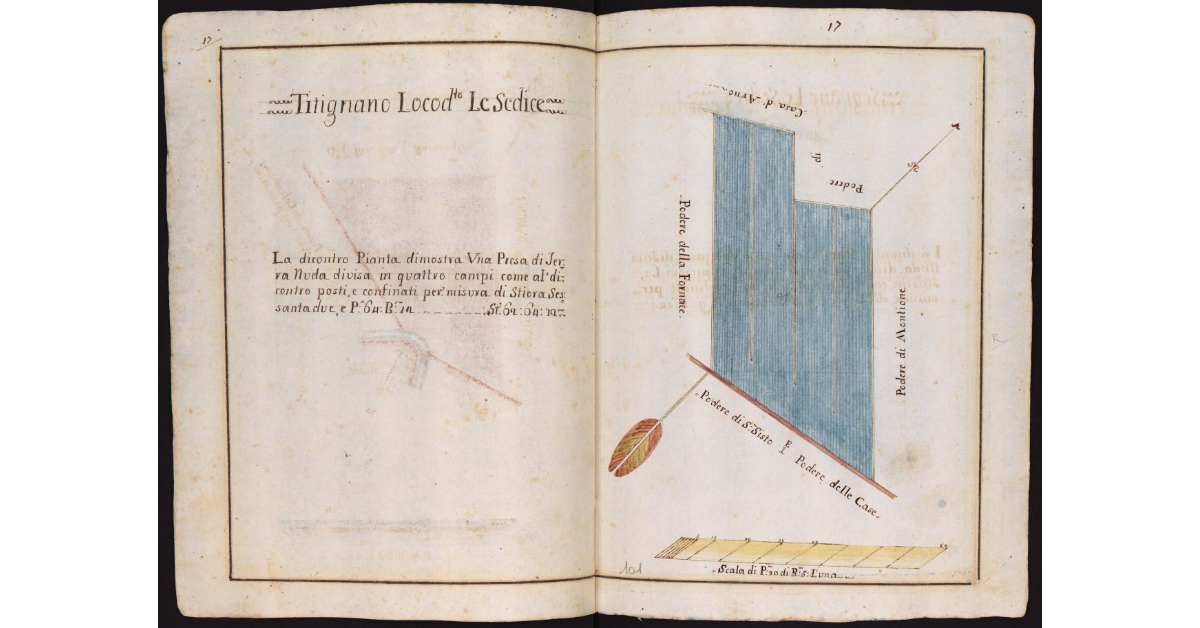 17
Titignano Locod.tto Le Sedice
La dicontro Pianta dimostra Vna Presa di Ter:
ra Nuda divisa in quattro campi come al'di:
contro posti, e confinati per misura di Stiora Ses:
santadue, e P.e 64: B.a
17
Casa d'Arno
Podere
Podere della Fornace.
Podere di Montione
Podere di S. Sisto E I Podere delle Case.
101
Scala di P. 50 di B. 5: L'una